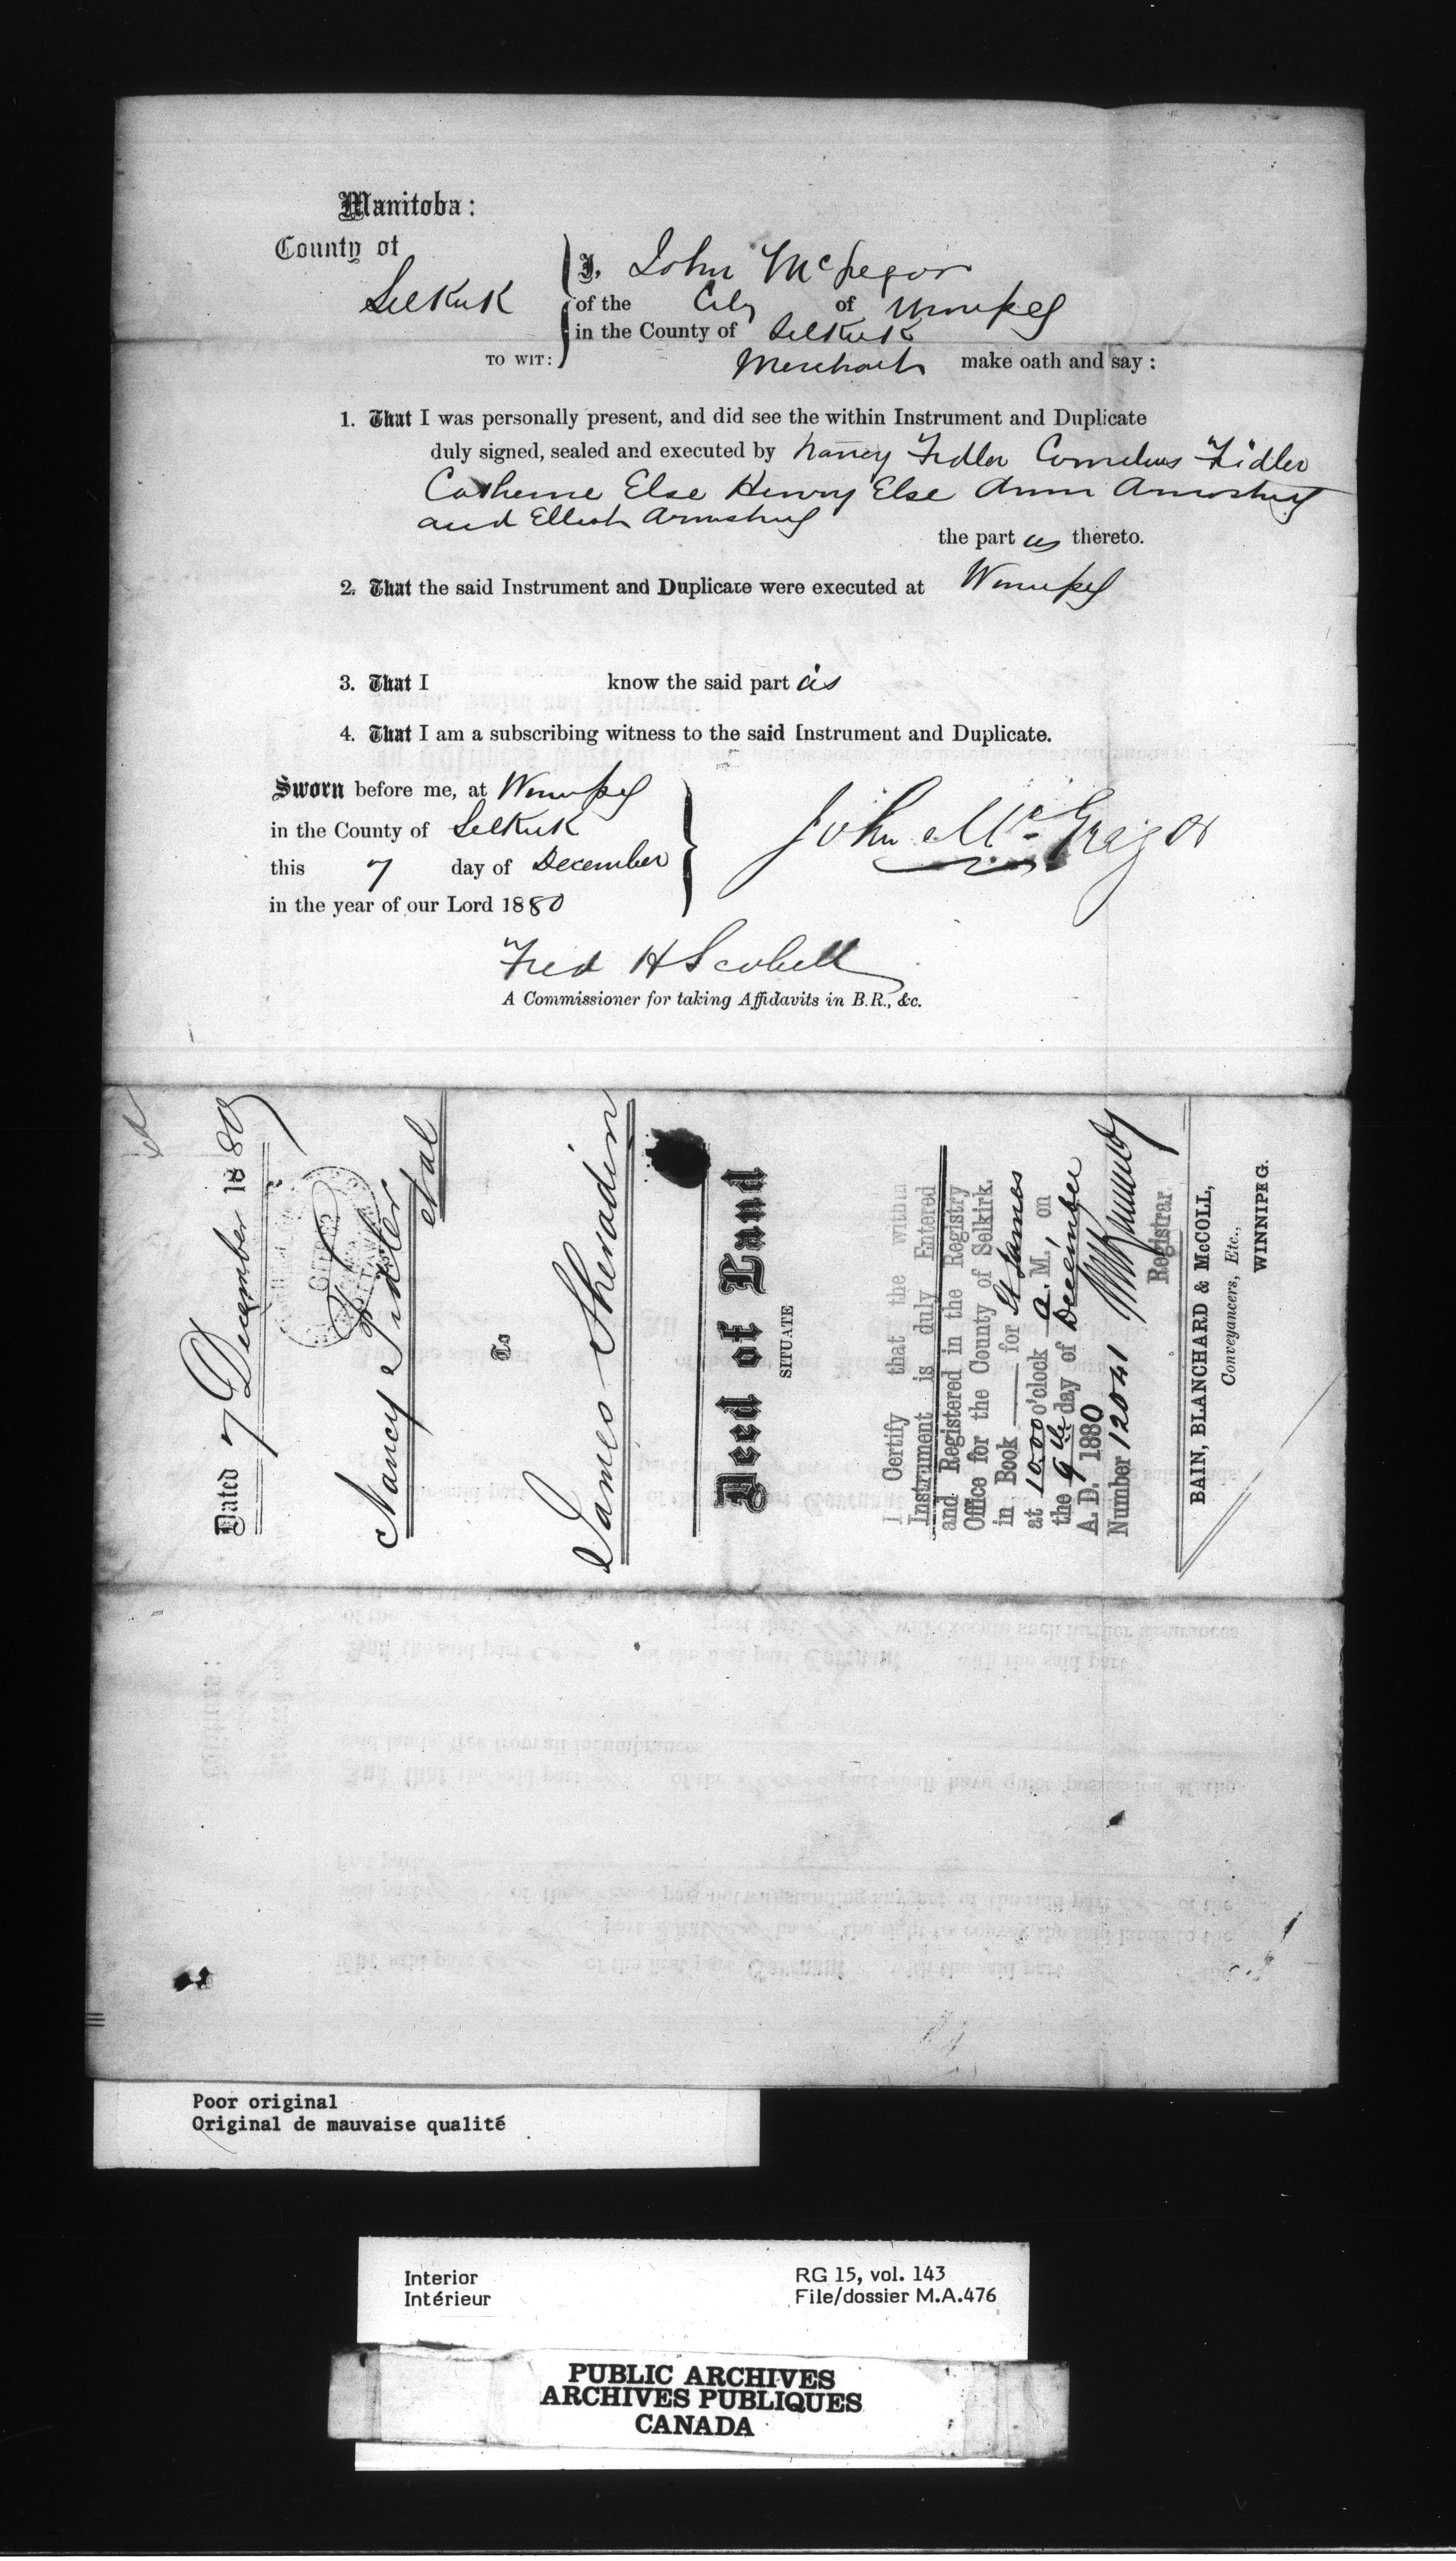 Manitoba:
County of
Selkirk
TO WIT:
I, John McGregor
of the City of Winnipeg
in the County of Selkirk
Merchant make oath and say:
1. That I was personally present, and did see the within Instrument and Duplicate
duly signed, sealed and executed by Nancy Fidler Cornelius Fidler
Catherine Else Henry Else Ann Armstrong
and Elliott Armstrong
the part ies thereto.
2. That the said Instrument and Duplicate were executed at Winnipeg
3. That I know the said part ies
4. That I am a subscribing witness to the said Instrument and Duplicate.
Sworn before me, at Winnipeg
in the County of Selkirk
this 7 day of December
in the year of our Lord 1880
John McGragor
Fred H Scobell
A Commissioner for taking Affidavits in B.R., &c.
Dated 7 December 1880
Nancy Fidler
et al
To
James Sheradin
Deed of Land
SITUATE
I Certify that the within
Instrument is duly Entered
and Registered in the Registry
Office for the County of Selkirk.
in Book for St James
at 10.00 o'clock a. M., on
the 9th day of December
A. D. 1880
Number 12041
Registrar.
BAIN, BLANCHARD & McCOLL,
Conveyancers, Etc.,
WINNIPEG.
Poor original
Original de mauvaise qualité
Interior
Intérieur
RG 15, vol. 143
File/dossier M.A.476
PUBLIC ARCHIVES
ARCHIVES PUBLIQUES
CANADA